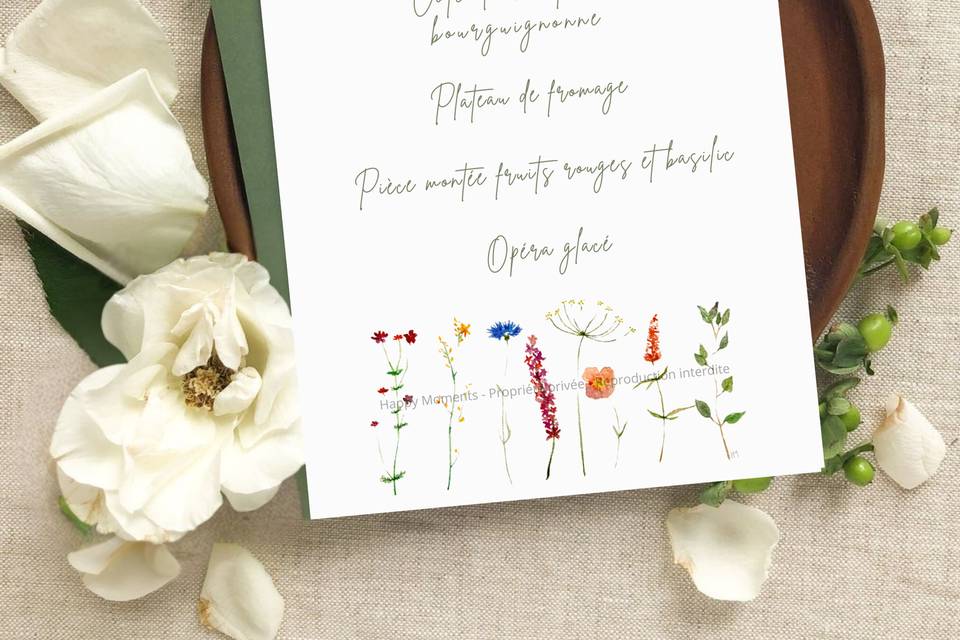 bourguignonne
Plateau de fromage
Pièce montée fruits rouges et basilic
Opéra glacé
Happy Moments - Propriété privée - Reproduction interdite